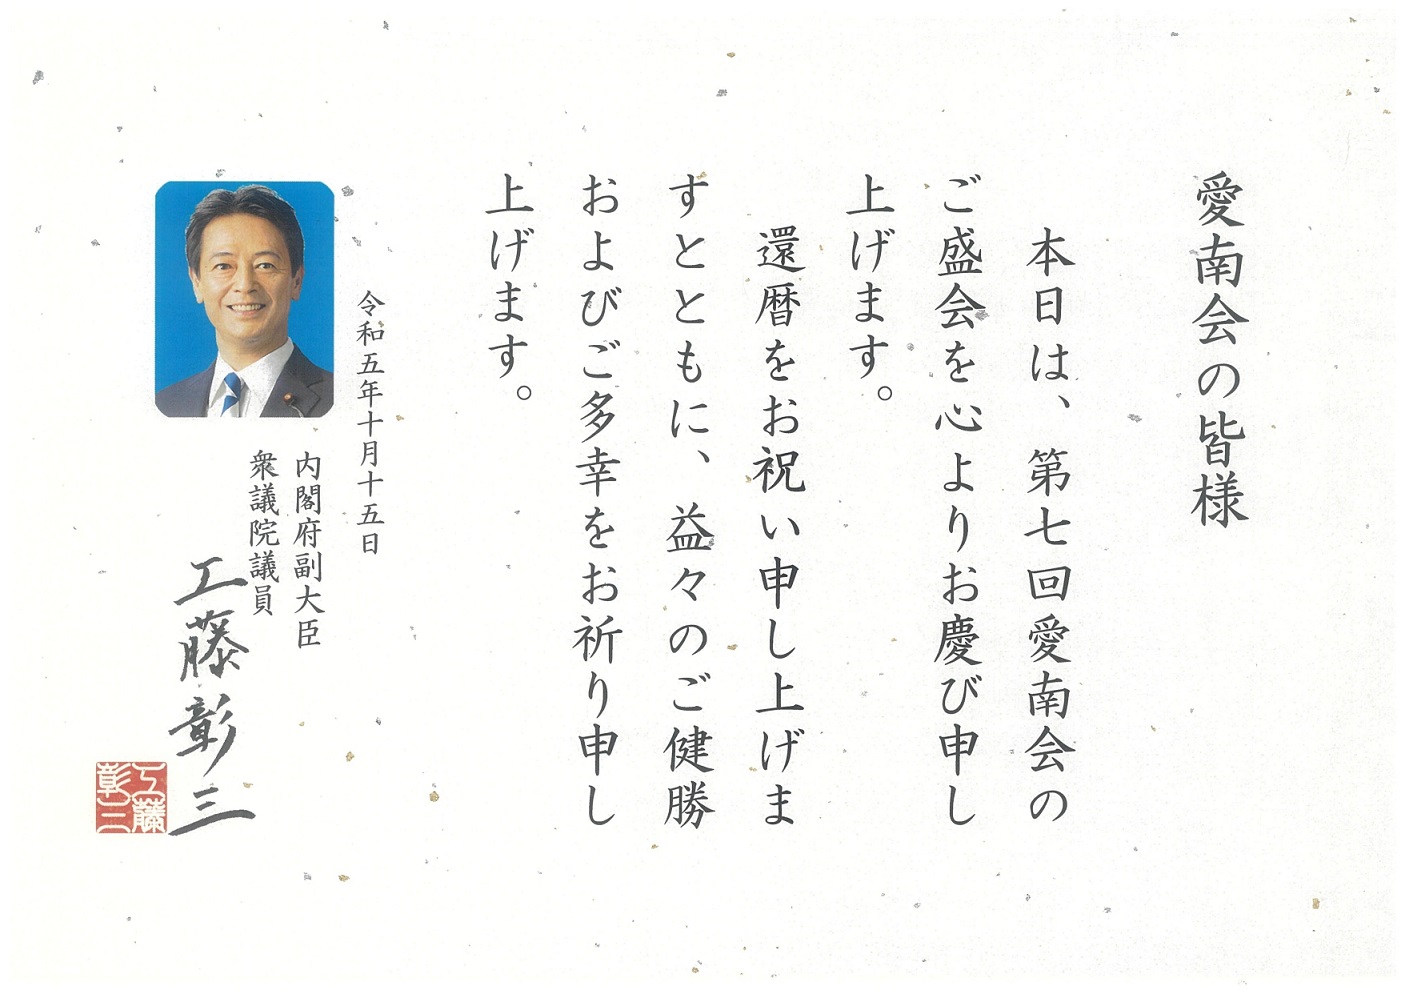 愛南会の皆様
本日は、第七回愛南会の
ご盛会を心よりお慶び申し
上げます。
還暦をお祝い申し上げま
すとともに、益々のご健勝
およびご多幸をお祈り申し
上げます。
令和五年十月十五日
内閣府副大臣
衆議院議員
工藤彰三
工藤
彰三